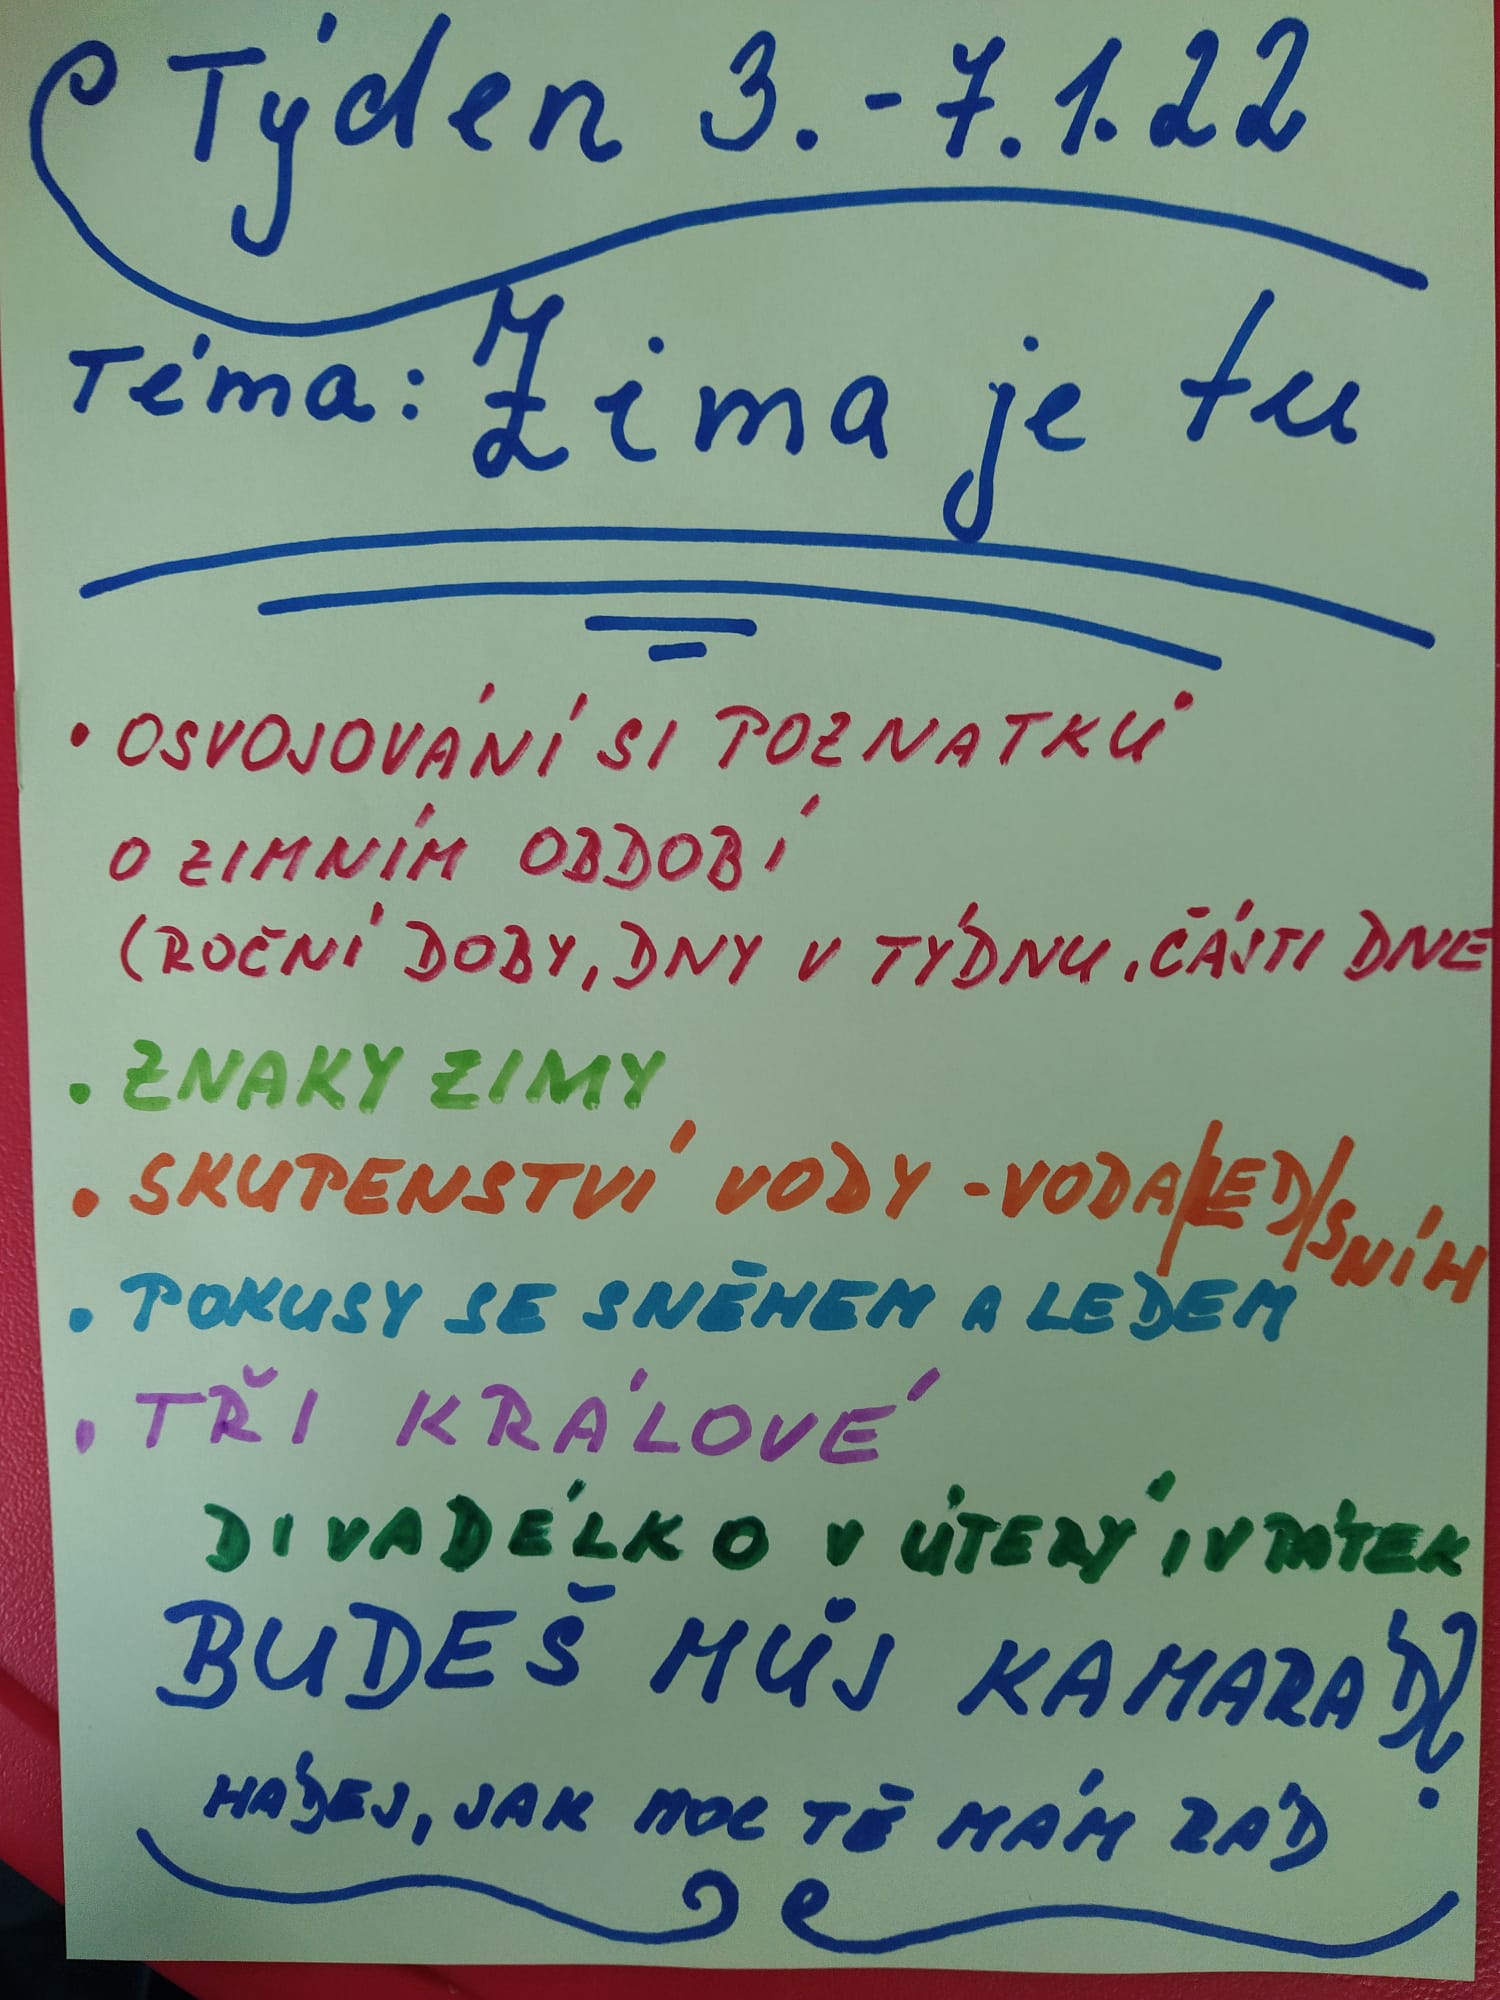 Týden 3. - 7. 1. 22
Téma: Zima je tu
• OSVOJOVÁNÍ SI POZNATKŮ
O ZIMNÍM OBDOBÍ
(ROČNÍ DOBY, DNY V TÝDNU, ČÁSTI DNE
• ZNAKY ZIMY
• SKUPENSTVÍ VODY - VODA/LED/SNÍH
• POKUSY SE SNĚHEM A LEDEM
• TŘI KRÁLOVÉ
DIVADÉLKO V ÚTERÝ I V PÁTEK
BUDEŠ MŮJ KAMARÁD?
HÁDEJ, JAK MOC TĚ MÁM RÁD